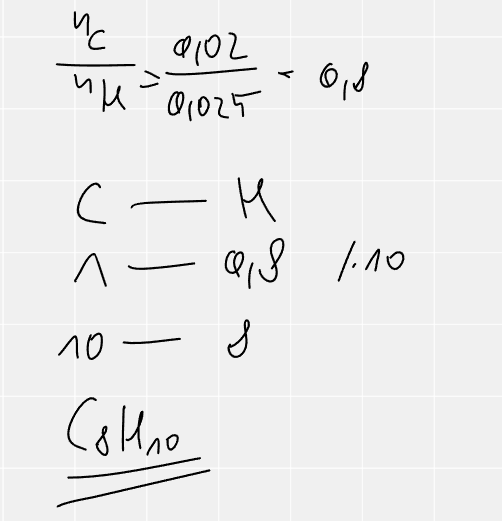 n_C / n_H = 0,02 / 0,025 = 0,8
C — H
1 — 0,8 /·10
10 — 8
C8H10